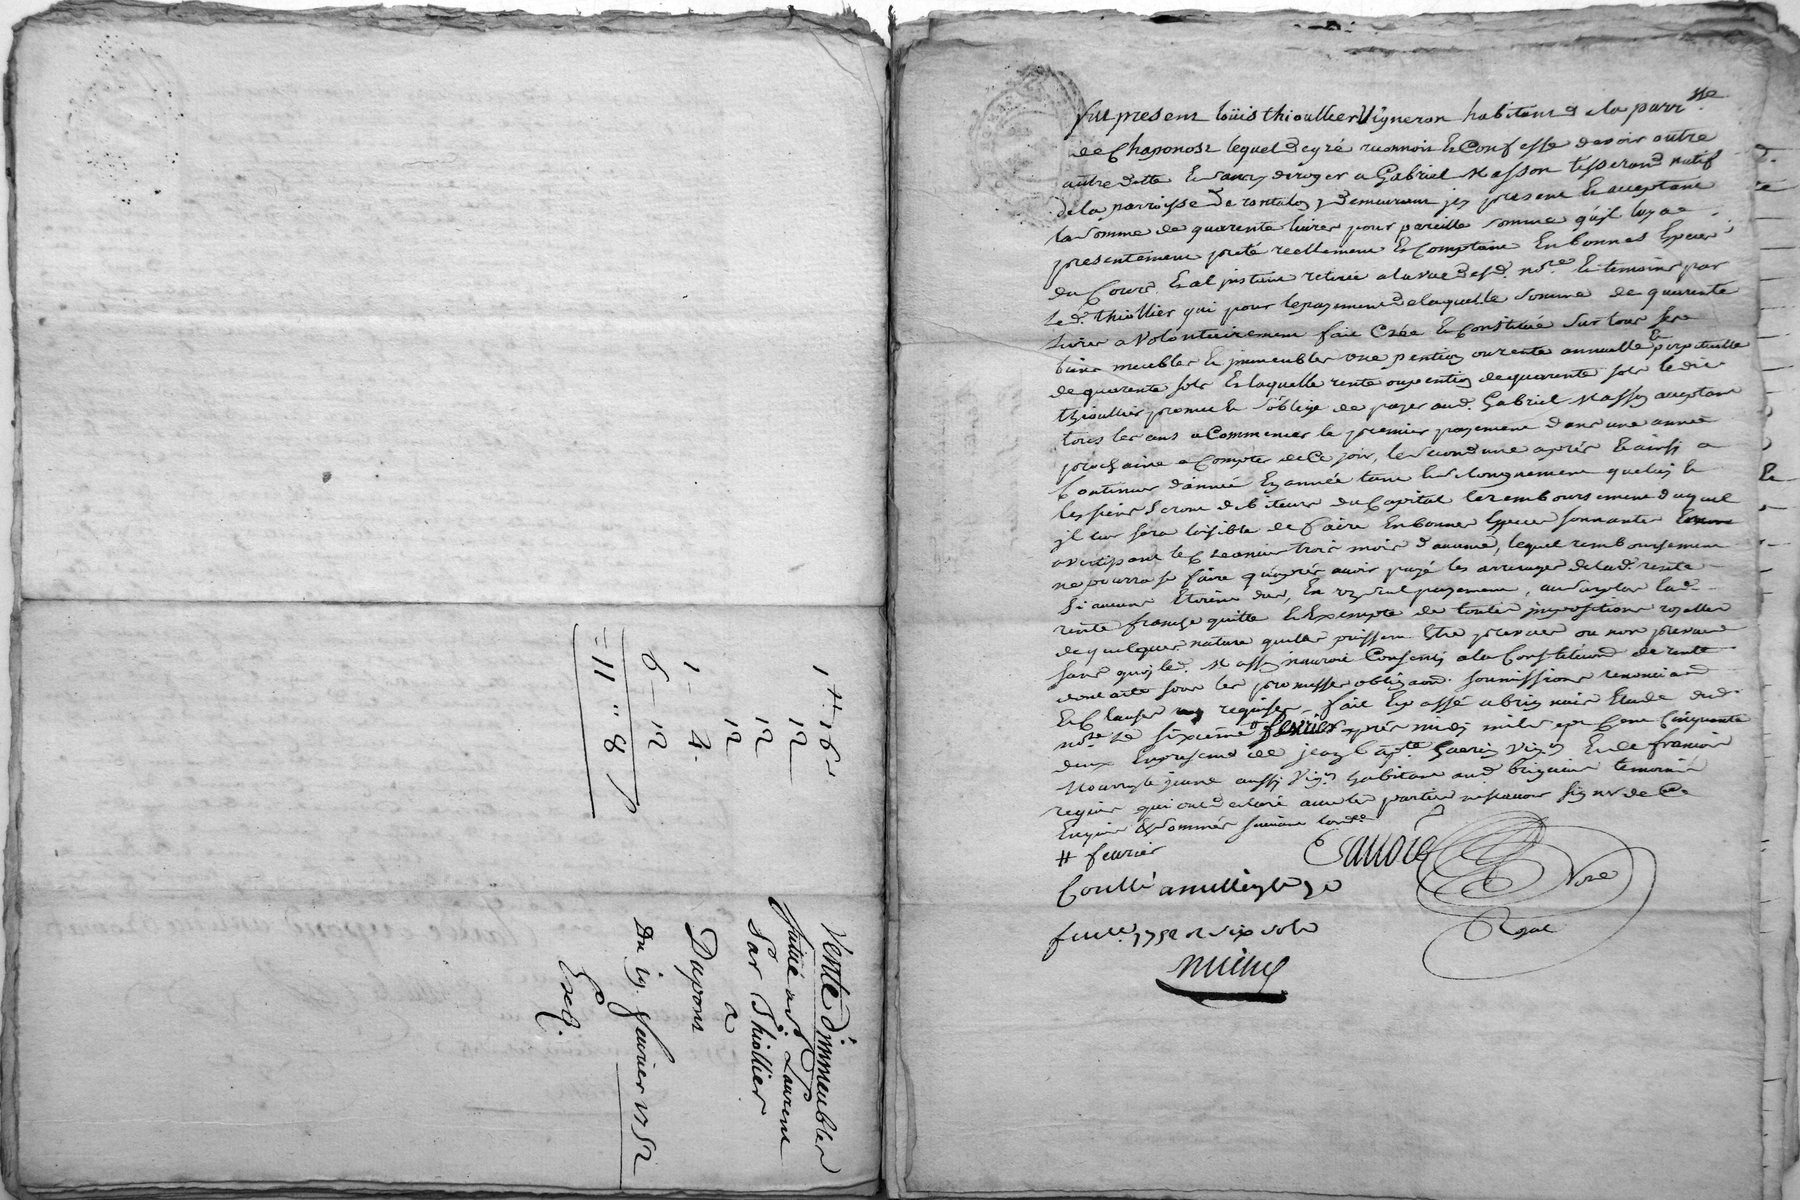 1 ₶ 16 s
12
12
12
1 - 4
6 - 12
= 11 " 8
Vente d'immeubles
faitte a St Laurent
Par Thiollier
a
Dupont
Du 19 fevrier 1752
Exp.
fut present loüis thioullier Vigneron habitant de la parr.sse
de Chaponost lequel de gré reconnoit et Confesse devoir outre
autre dette et sans deroger a Gabriel Masson tisserand natif
de la parroisse de rontalon y demeurant jcy present et acceptant
la somme de quarente livres pour pareille somme qu'jl luy a
presentement preté reellement et Comptant En bonnes Especes
du Cours Et al jnstant retirée a la vue desd. no.re et temoins par
led. thiollier qui pour le payement de laquelle somme de quarente
livres a Volontairement fait Créé et Constitué sur tous ses
biens meubles et jmmeubles une pention ou rente annuelle et perpetuelle
de quarente sols Et laquelle rente ou pention de quarente sols ledit
thioullier promet et s'oblige de payer aud. Gabriel Masson acceptant
tous les ans a Commencer le premier payement dans une année
prochaine a Compter de Ce jour, le second une après et ainsi a
Continuer d'année En année tant et si longuement que luy et
les siens seront debiteurs du Capital le remboursement duquel
jl leur sera loisible de faire En bonnes Especes sonnantes
avertissant le Creancier trois mois d'avance, lequel remboursement
ne pourra se faire qu'après avoir payé les arrerages de lad. rente
si aucuns Etoient dus, En un seul payement, au surplus lad.
rente franche quitte et Exempte de toutes jmpositions royalles
de quelques nature quelles puissent Etre prevues ou non prevues
sans quoy led. Masson n'auroit Consenty a la Constitution de rente
dont acte sous les promesses obligaons. soumissions renonciaons
Et Clauses requises fait Et passé a brignais Etude dud.
no.re le sixieme # fevrier après midy mil sept Cent Cinquante
deux En presence de jean bapte. Guerin Vig.n Et de francois
Mourrat jeune aussi Vig.n habitant aud brignais temoins
requis qui ont declaré avec les parties ne scavoir signer de Ce
Enquis & sommés suivant lord.ce
# fevrier
Conttlé a
fevr. 1752 R six sols
No.re
Royal